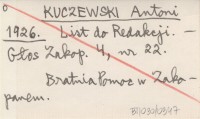 KUCZEWSKI Antoni
1926. List do Redakcji. –
Głos Zakop. 4, nr 22.
Bratnia Pomoc w Zako-
panem.